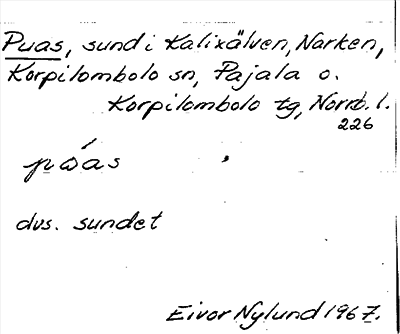 Puas, sund i Kalixälven, Narken,
Korpilombolo sn, Pajala o.
Korpilombolo tg, Norrb. l.
226
dvs. sundet
Eivor Nylund 1967.